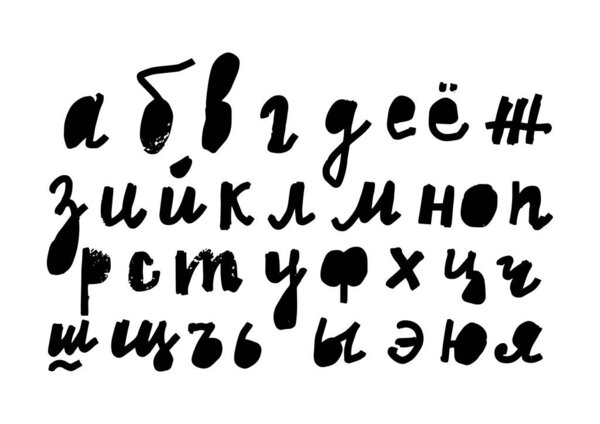 а б в г д е ё ж
з и й к л м н о п
р с т у ф х ц ч
ш щ ъ ь ы э ю я